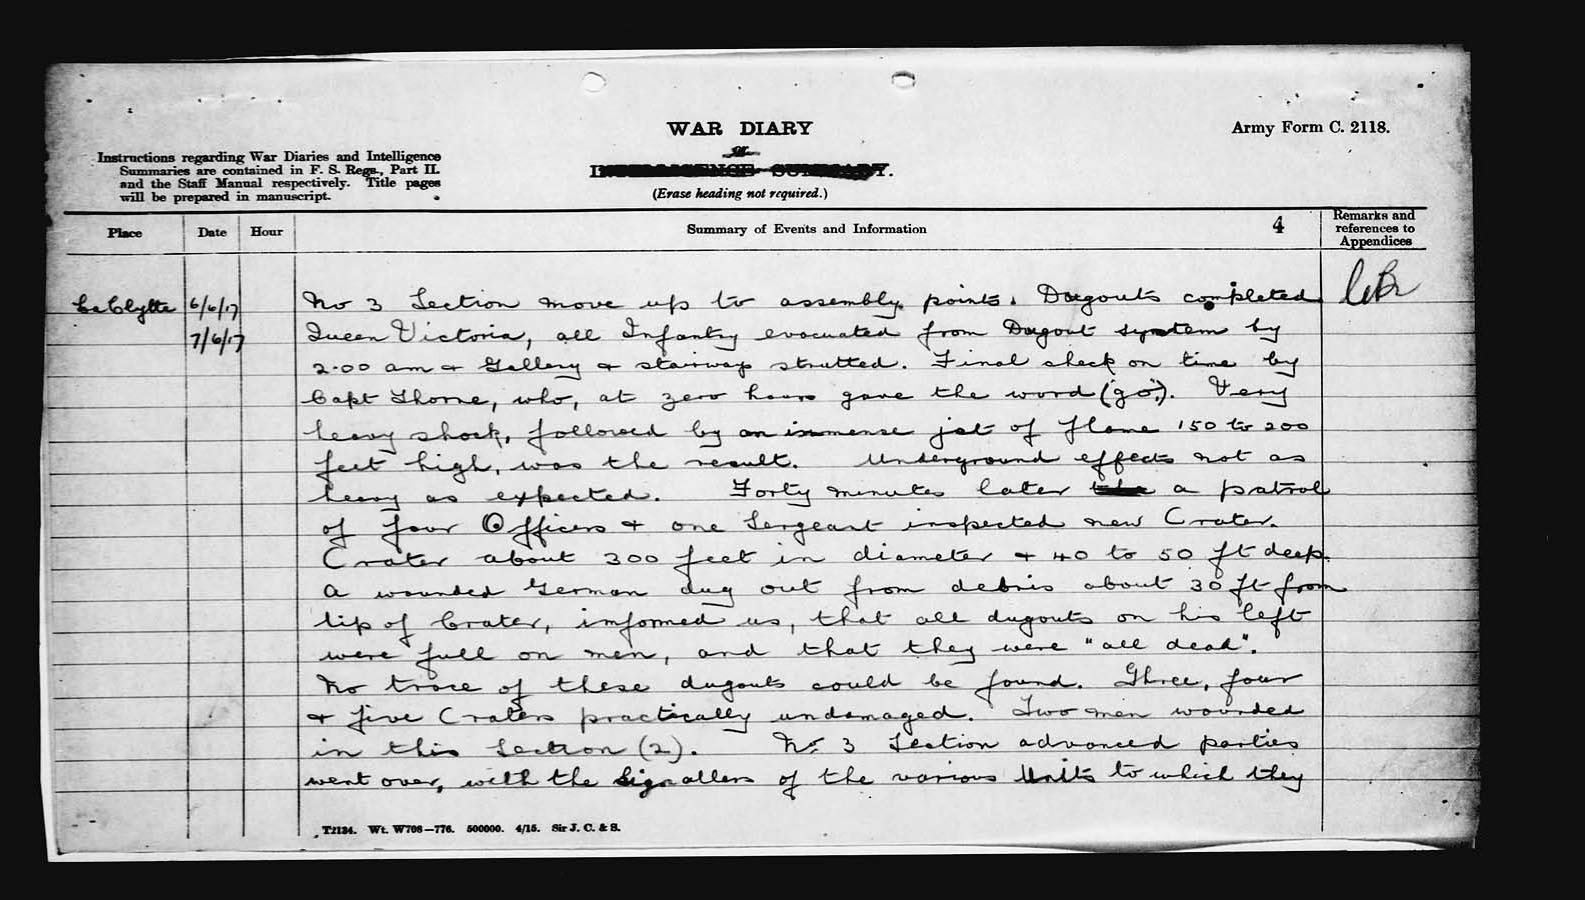 WAR DIARY
or
INTELLIGENCE SUMMARY.
(Erase heading not required.)
Army Form C. 2118.
Instructions regarding War Diaries and Intelligence
Summaries are contained in F. S. Regs., Part II.
and the Staff Manual respectively. Title pages
will be prepared in manuscript.
Place Date Hour Summary of Events and Information 4 Remarks and
references to
Appendices
La Clytte 6/6/17 No 3 Section move up to assembly points. Dugouts completed
7/6/17 Queen Victoria, all Infantry evacuated from Dugout system by
2.00 am & Gallery & stairway strutted. Final check on time by
Capt Thorne, who, at zero hours gave the word ("go"). Very
heavy shock, followed by an immense jet of flame 150 to 200
feet high, was the result. Underground effects not as
heavy as expected. Forty minutes later a patrol
of four Officers & one Sergeant inspected new Crater.
Crater about 300 feet in diameter & 40 to 50 ft deep.
A wounded German dug out from debris about 30 ft from
lip of Crater, informed us, that all dugouts on his left
were full on men, and that they were "all dead".
No trace of these dugouts could be found. Three, four
& five Craters practically undamaged. Two men wounded
in this Section (2). No. 3 Section advanced parties
went over, with the Signallers of the various Units to which they
T2134. Wt. W708—776. 500000. 4/15. Sir J. C. & S.